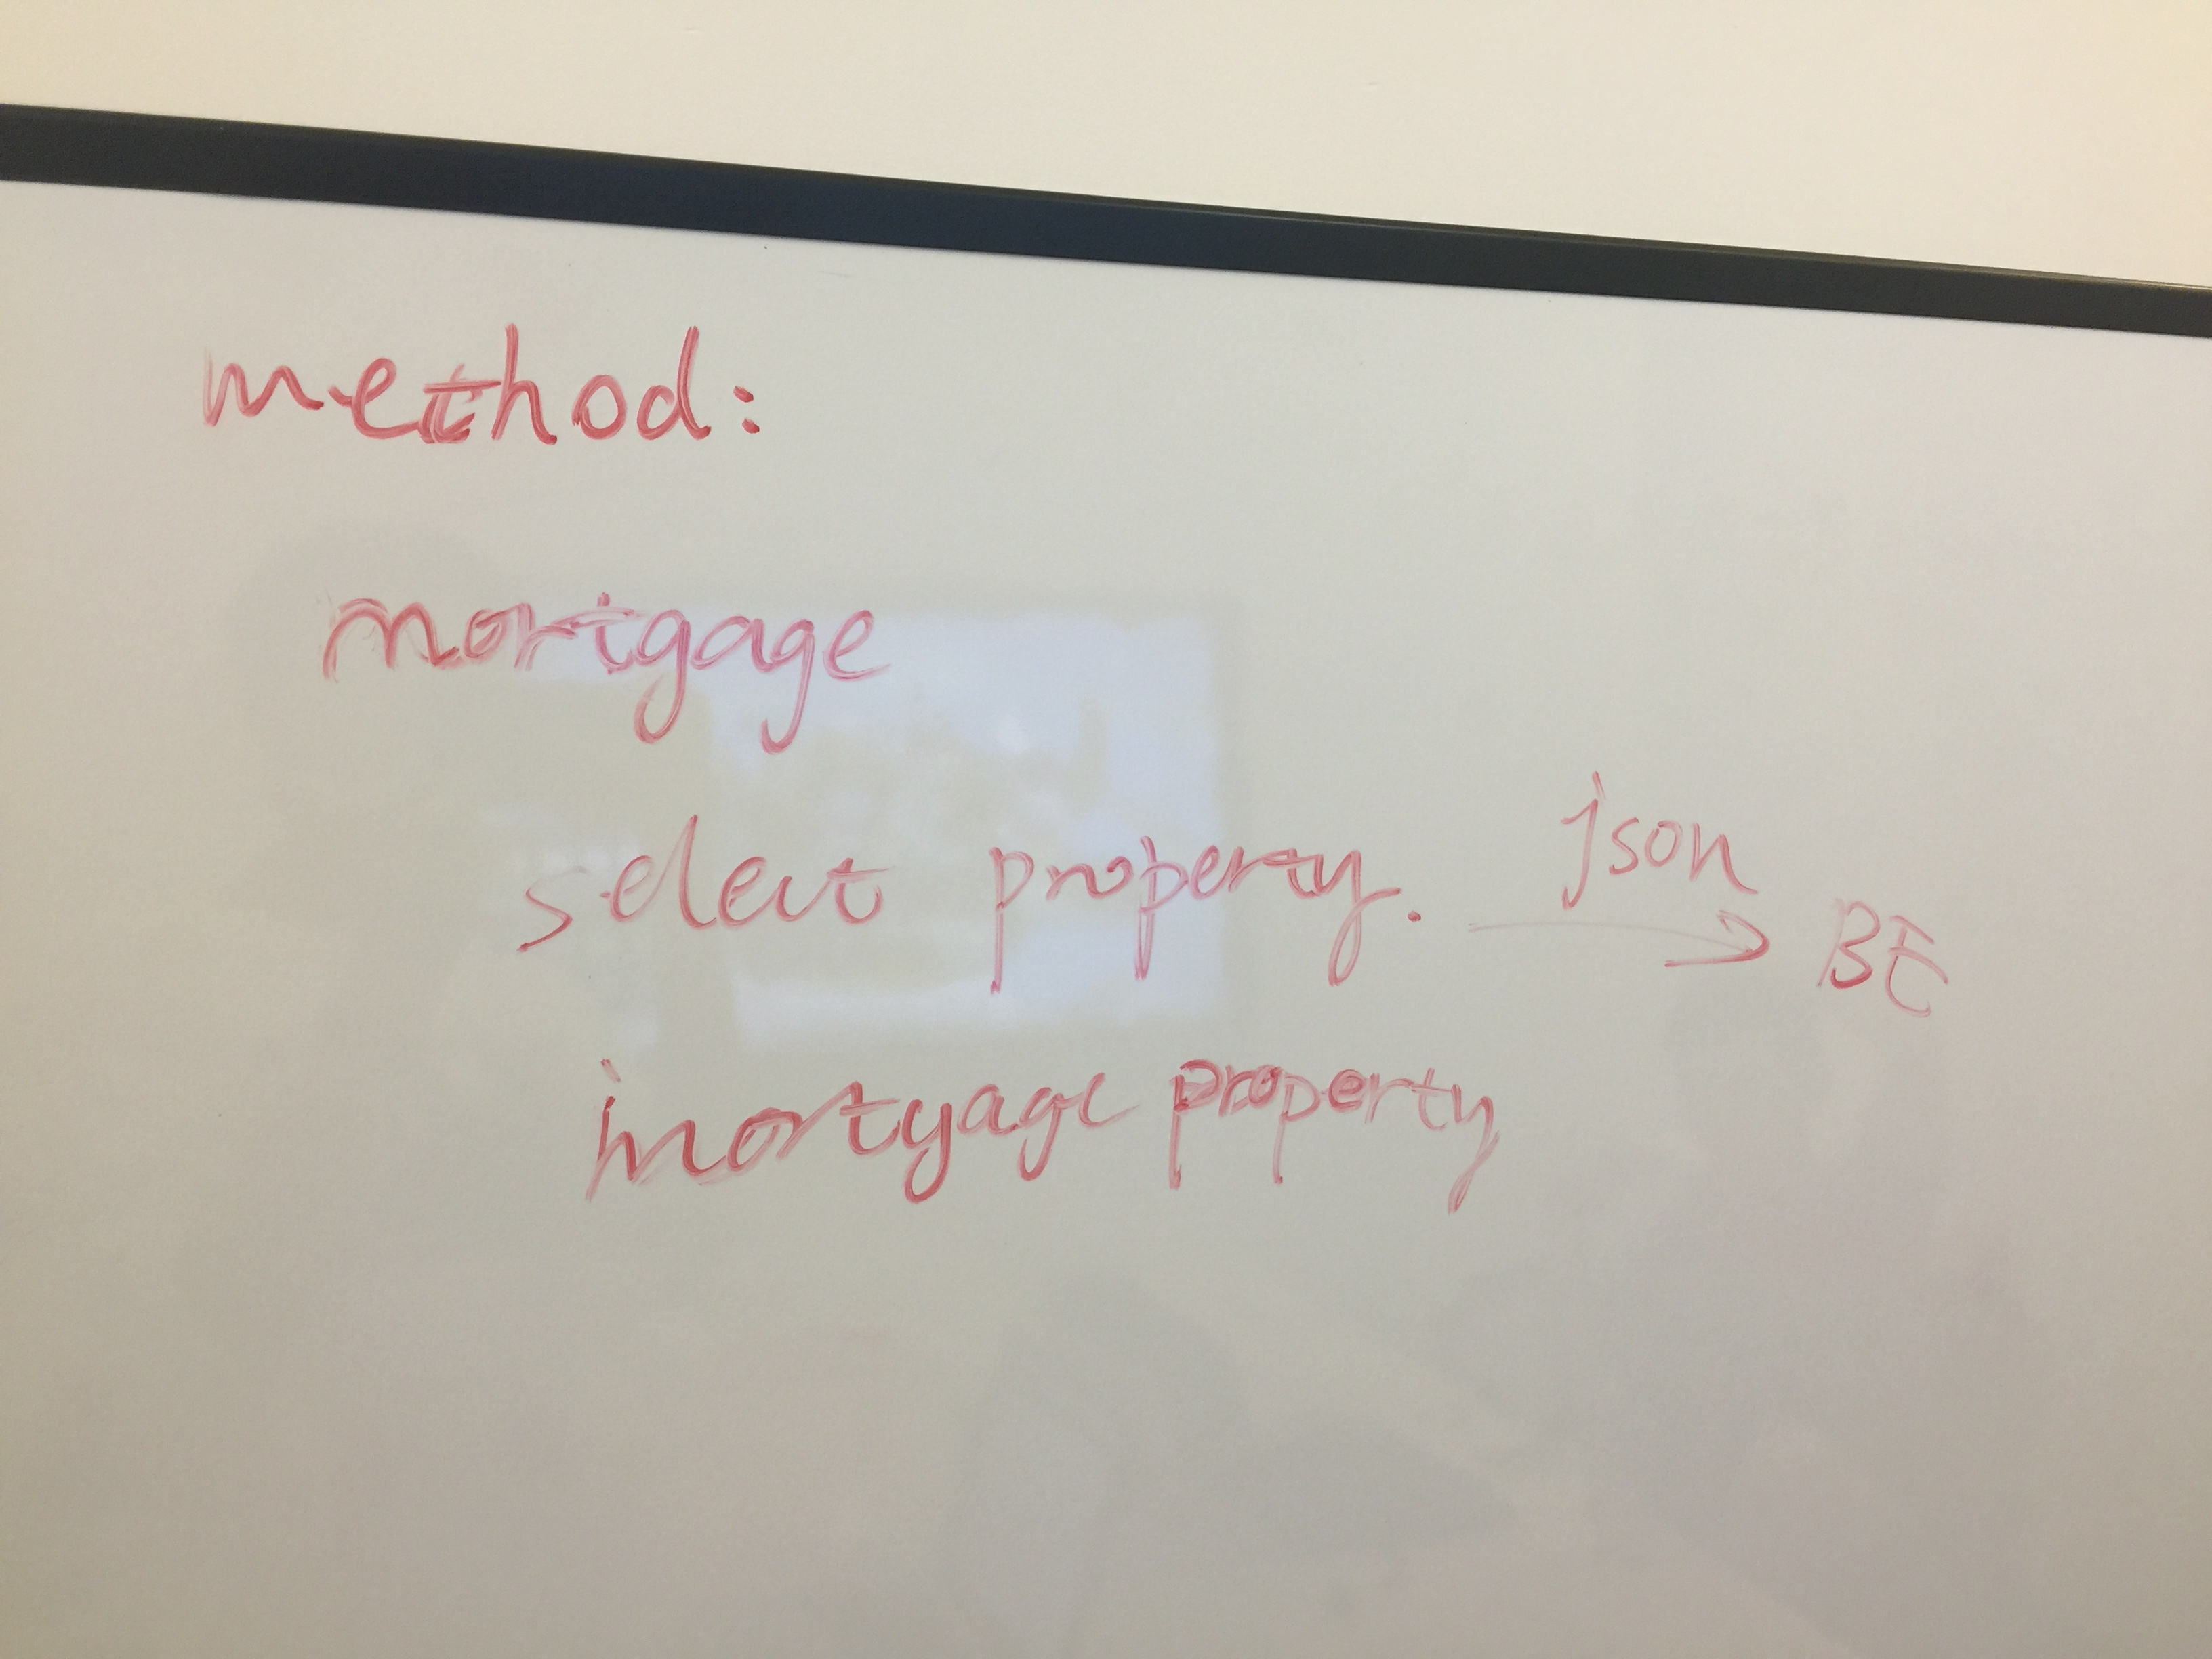 method:
mortgage
select property. json → BE
mortgage property